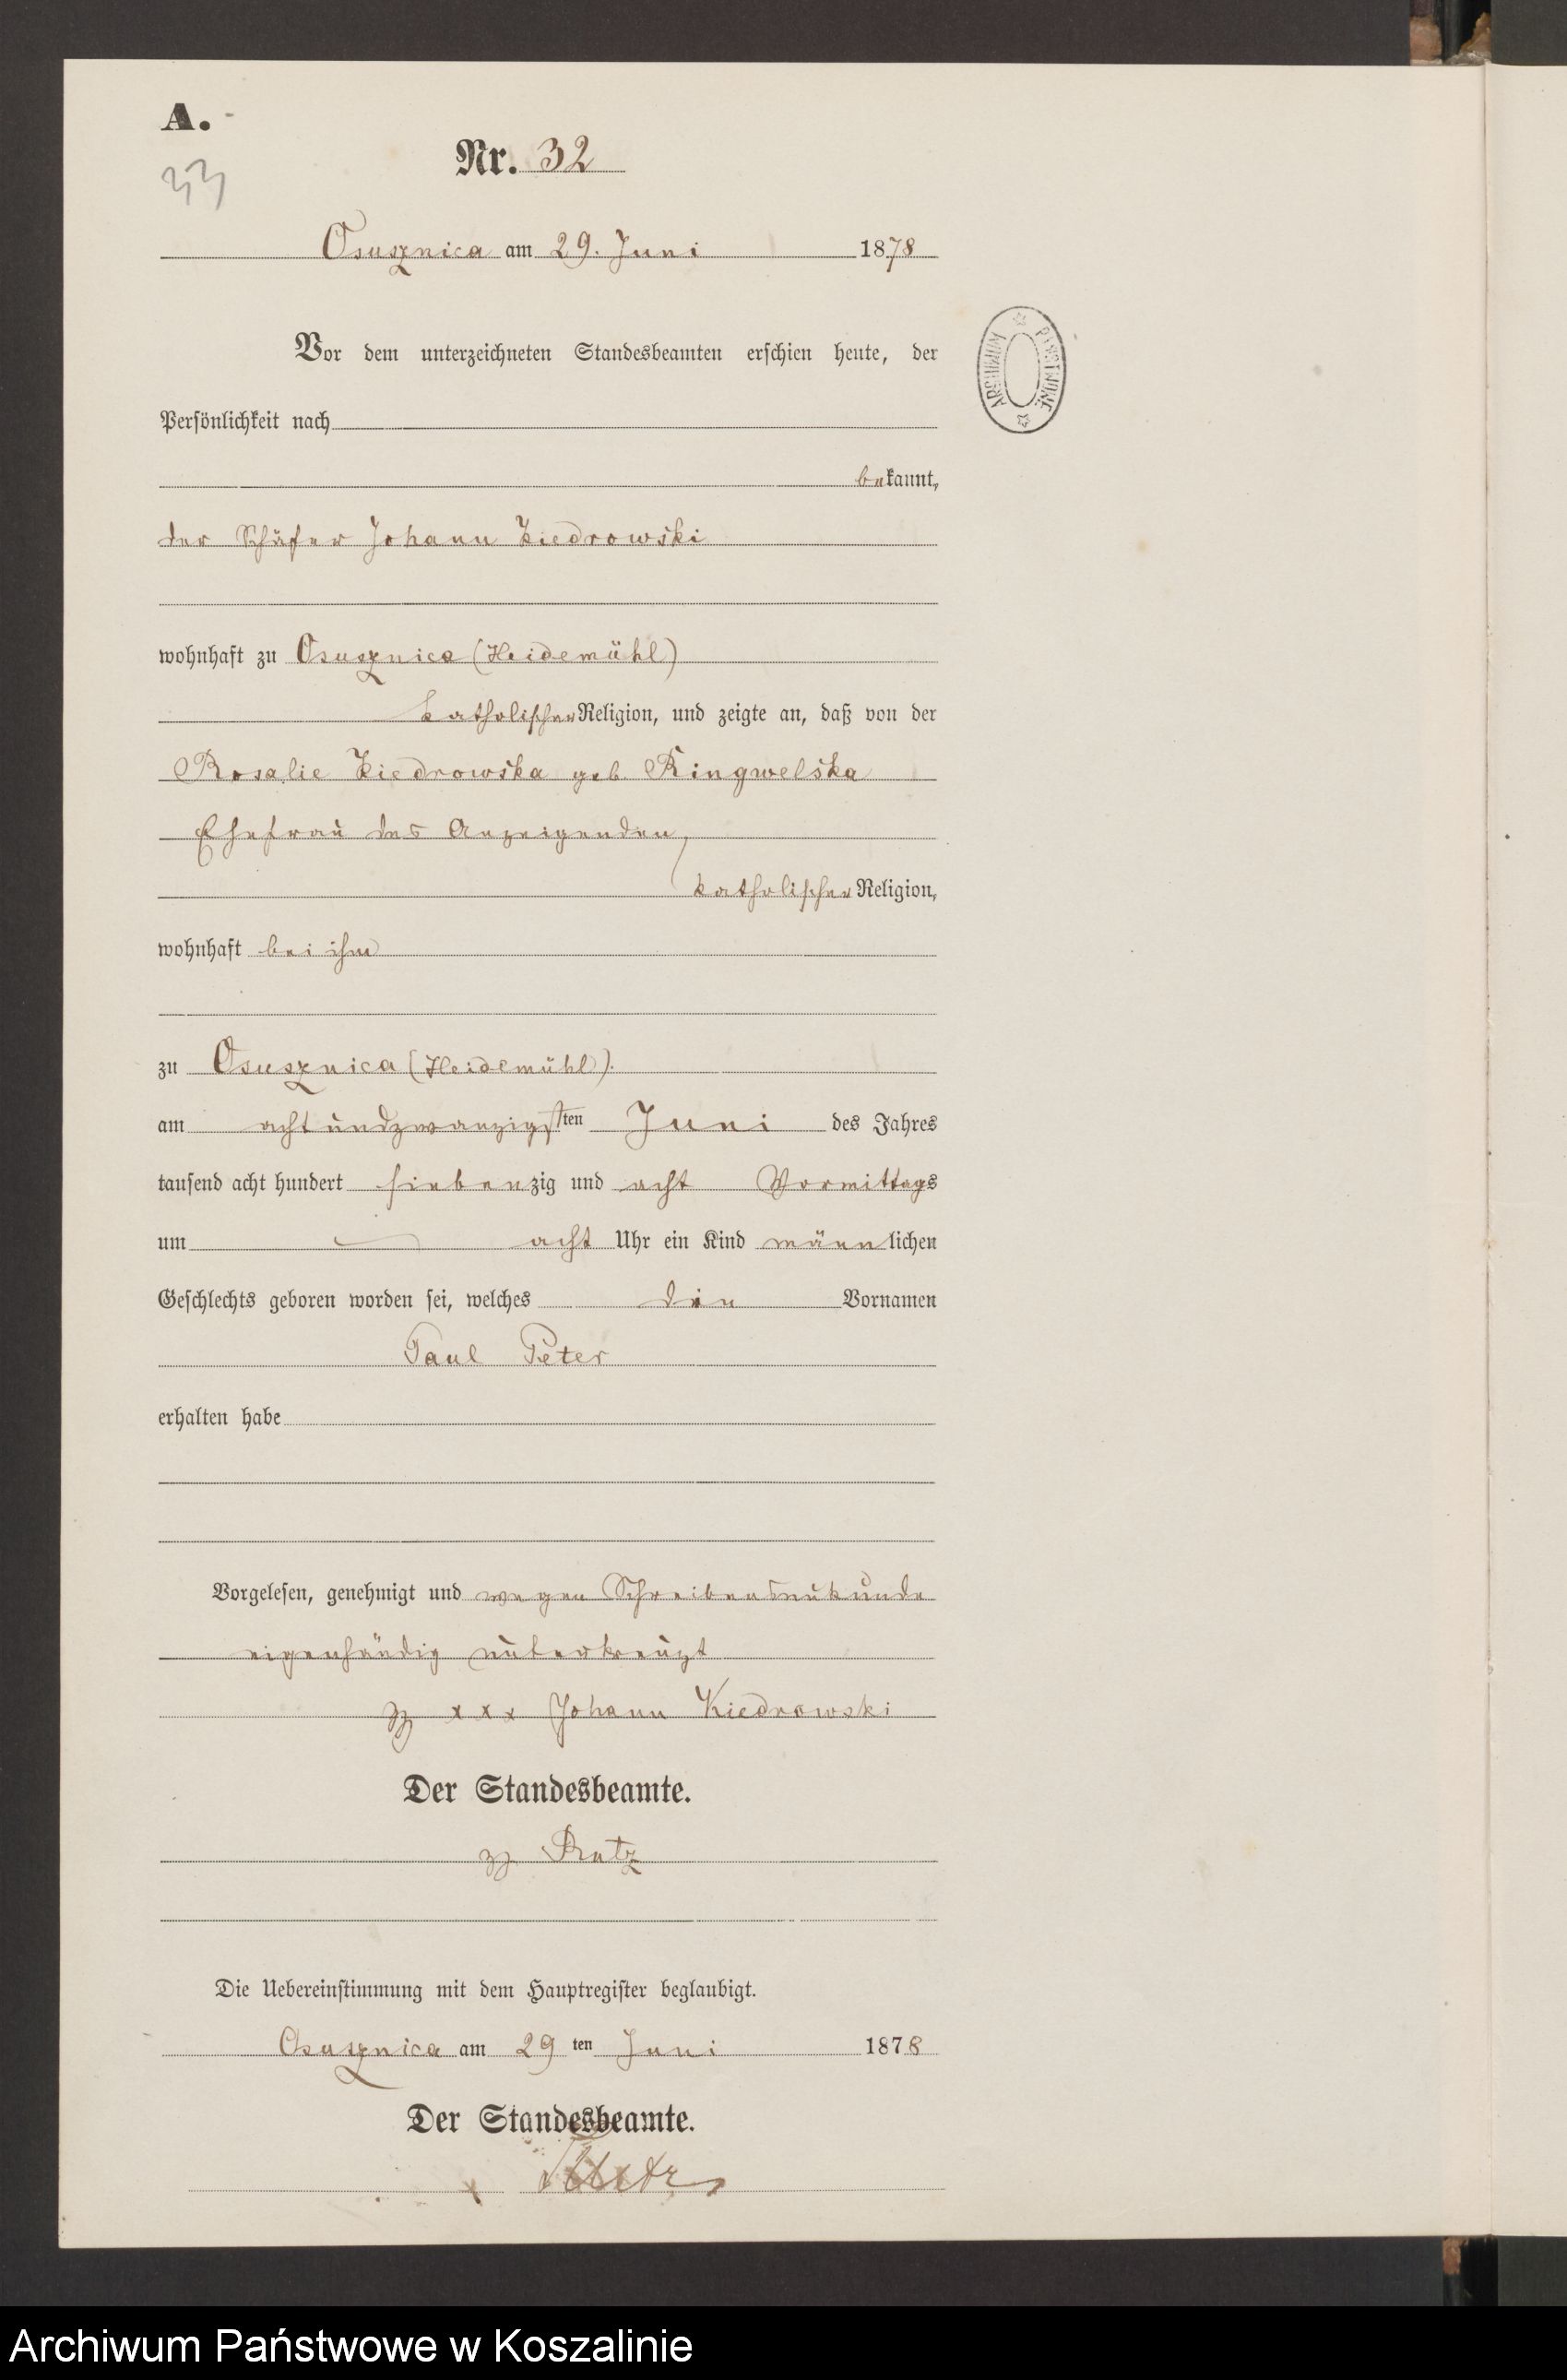 A.
33
Nr. 32
Osusznica am 29. Juni 1878
Vor dem unterzeichneten Standesbeamten erschien heute, der
Persönlichkeit nach
bekannt,
der Schäfer Johann Kiedrowski
wohnhaft zu Osusznica (Heidemühl)
katholischer Religion, und zeigte an, daß von der
Rosalie Kiedrowska geb. Ringwelska
Ehefrau des Anzeigenden,
katholischer Religion,
wohnhaft bei ihm
zu Osusznica (Heidemühl).
am achtundzwanzigsten Juni des Jahres
tausend acht hundert siebenzig und acht Vormittags
um acht Uhr ein Kind männlichen
Geschlechts geboren worden sei, welches den Vornamen
Paul Peter
erhalten habe
Vorgelesen, genehmigt und wegen Schreibensunkunde
eigenhändig unterkreuzt
gz xxx Johann Kiedrowski
Der Standesbeamte.
gz
Die Uebereinstimmung mit dem Hauptregister beglaubigt.
Osusznica am 29 ten Juni 1878
Der Standesbeamte.
ARCHIWUM PAŃSTWOWE
Archiwum Państwowe w Koszalinie